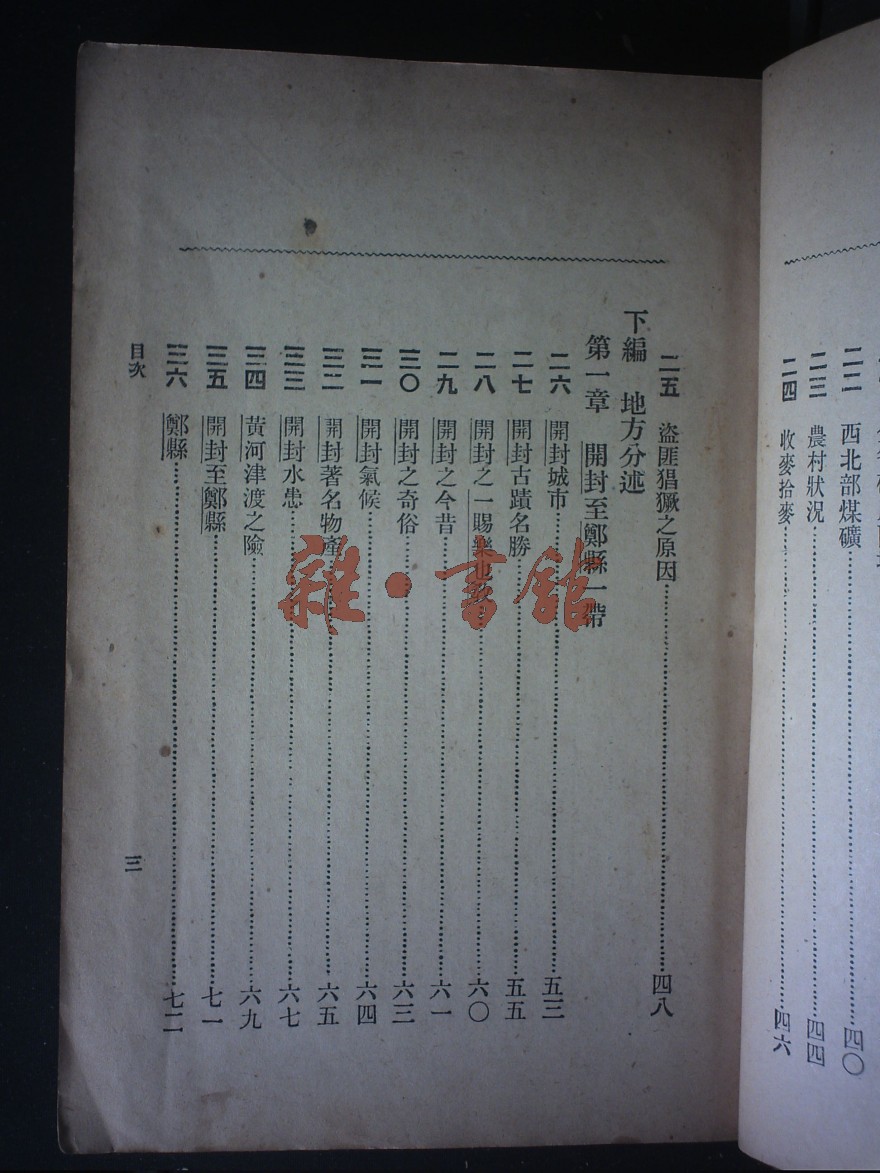 二二 西北部煤礦 四〇
二三 農村狀況 四四
二四 收麥拾麥 四六
二五 盜匪猖獗之原因 四八
下編 地方分述
第一章 開封至鄭縣一帶
二六 開封城市 五三
二七 開封古蹟名勝 五五
二八 開封之一賜樂也教 六〇
二九 開封之今昔 六一
三〇 開封之奇俗 六三
三一 開封氣候 六四
三二 開封著名物產 六五
三三 開封水患 六七
三四 黃河津渡之險 六九
三五 開封至鄭縣 七一
三六 鄭縣 七二
目次
三
雜·書館